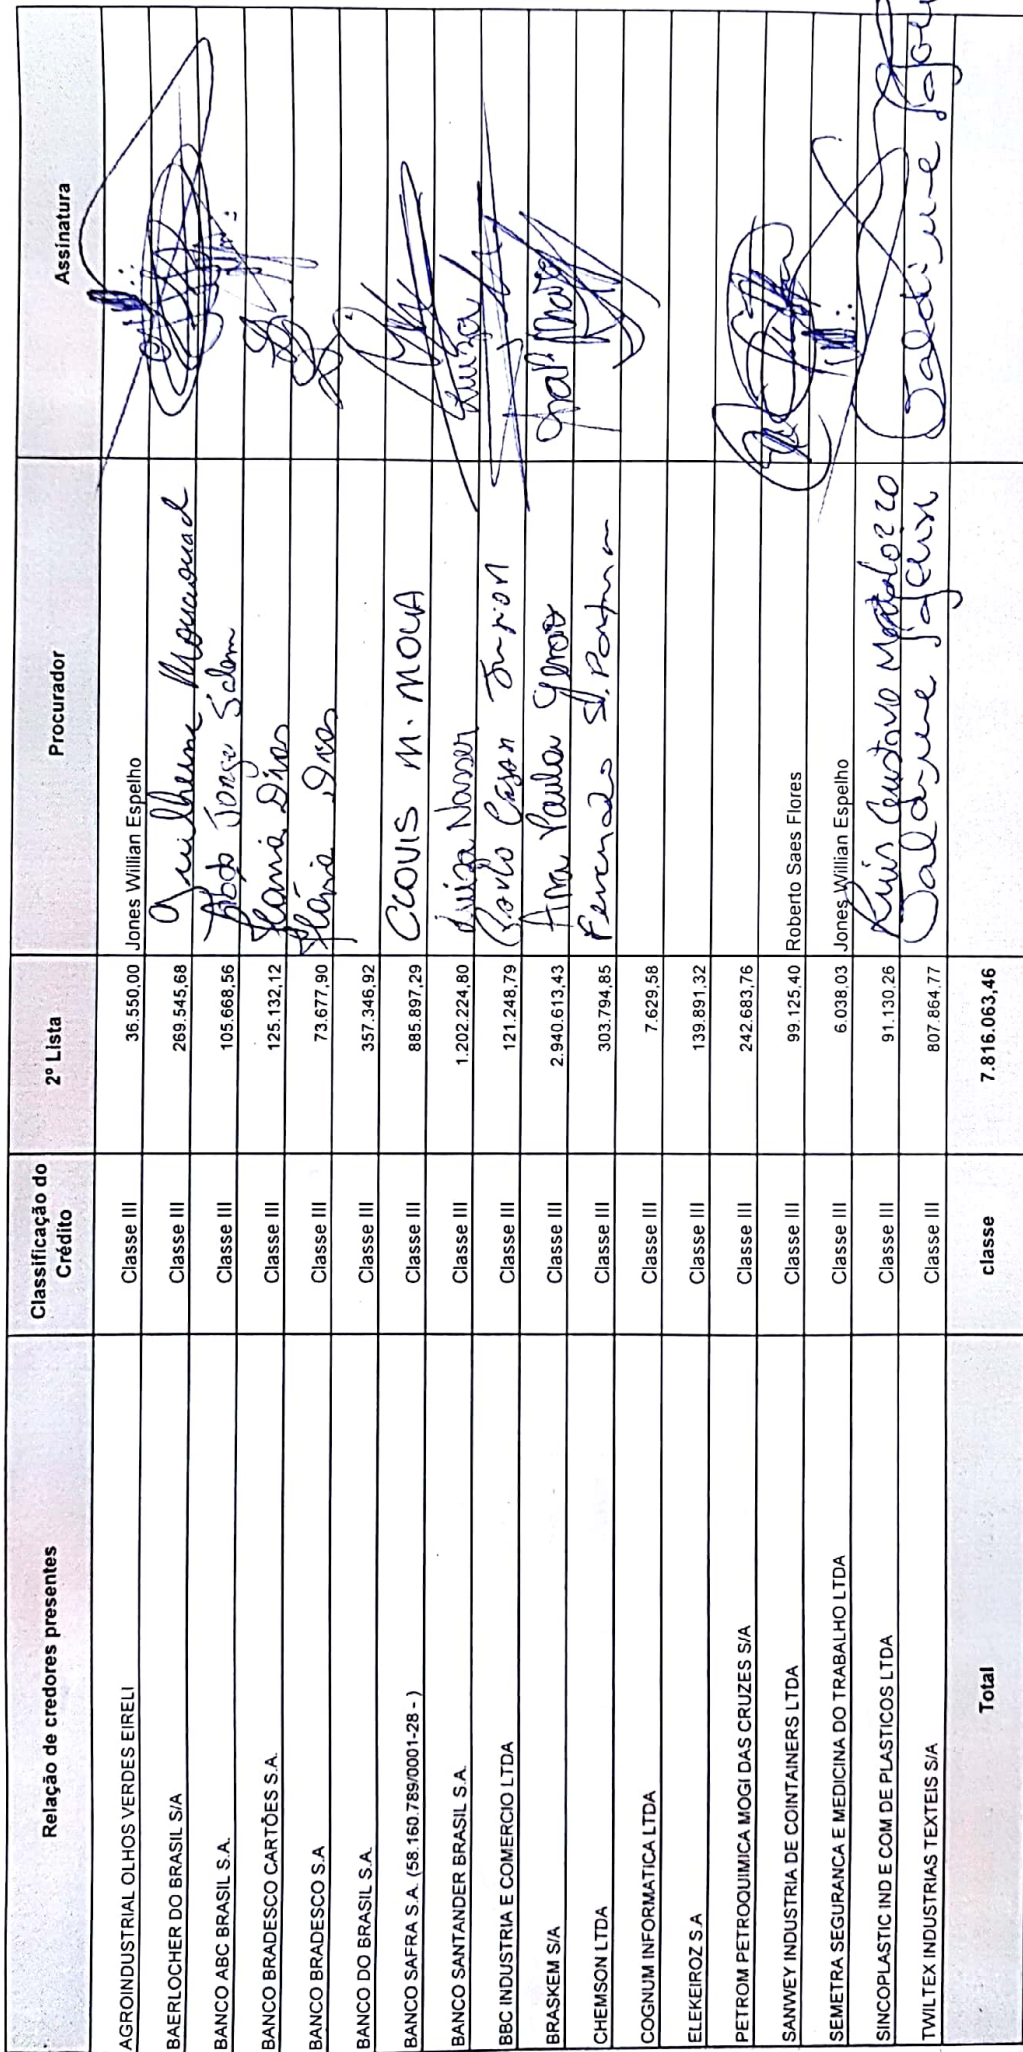 Relação de credores presentes Classificação do Crédito 2º Lista Procurador Assinatura
AGROINDUSTRIAL OLHOS VERDES EIRELI Classe III 36.550,00 Jones Willian Espelho
BAERLOCHER DO BRASIL S/A Classe III 269.545,68 Guilherme Moucouad
BANCO ABC BRASIL S.A. Classe III 105.668,56 Abdo Jorge Salem
BANCO BRADESCO CARTÕES S.A. Classe III 125.132,12 Flávia Dias
BANCO BRADESCO S.A Classe III 73.677,90 Flávia Dias
BANCO DO BRASIL S.A. Classe III 357.346,92
BANCO SAFRA S.A. (58.160.789/0001-28 - ) Classe III 885.897,29 CLOVIS M. MOUA
BANCO SANTANDER BRASIL S.A. Classe III 1.202.224,80 Luiza Nasser Luiza
BBC INDUSTRIA E COMERCIO LTDA Classe III 121.248,79 Paulo Cesar Junior
BRASKEM S/A Classe III 2.940.613,43 Ana Paula
CHEMSON LTDA Classe III 303.794,85 Fernando
COGNUM INFORMATICA LTDA Classe III 7.629,58
ELEKEIROZ S.A Classe III 139.891,32
PETROM PETROQUIMICA MOGI DAS CRUZES S/A Classe III 242.683,76
SANWEY INDUSTRIA DE COINTAINERS LTDA Classe III 99.125,40 Roberto Saes Flores
SEMETRA SEGURANCA E MEDICINA DO TRABALHO LTDA Classe III 6.038,03 Jones Willian Espelho
SINCOPLASTIC IND E COM DE PLASTICOS LTDA Classe III 91.130,26 Luis Gustavo
TWILTEX INDUSTRIAS TEXTEIS S/A Classe III 807.864,77
Total classe 7.816.063,46